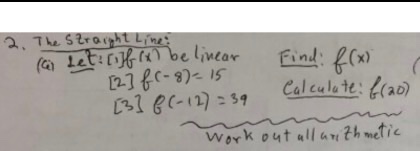 2. The Straight Line:
(a) Let: [1] f(x) be linear Find: f(x)
[2] f(-8) = 15
[3] f(-12) = 39 Calculate: f(20)
Work out all arithmetic